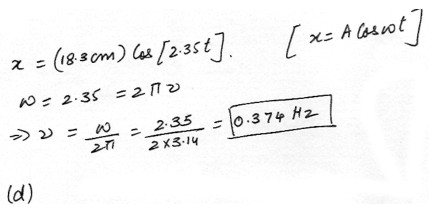 x = (18.3 cm) Cos [2.35t]. [x = A Cos ωt]
ω = 2.35 = 2πν
⇒ ν = ω/2π = 2.35/2×3.14 = 0.374 Hz
(d)